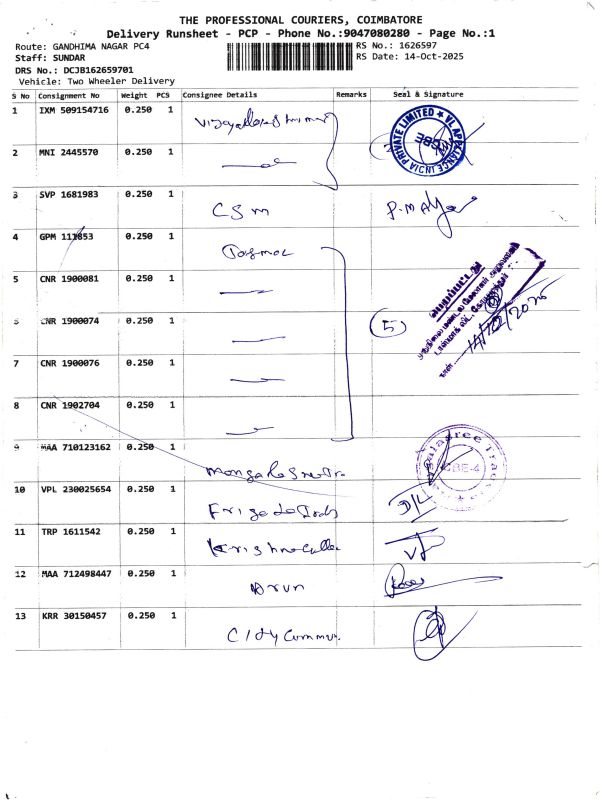 THE PROFESSIONAL COURIERS, COIMBATORE
Delivery Runsheet - PCP - Phone No.:9047080280 - Page No.:1
Route: GANDHIMA NAGAR PC4
RS No.: 1626597
Staff: SUNDAR
RS Date: 14-Oct-2025
DRS No.: DCJB162659701
Vehicle: Two Wheeler Delivery
S No Consignment No Weight PCS Consignee Details Remarks Seal & Signature
1 IXM 509154716 0.250 1
2 MNI 2445570 0.250 1
3 SVP 1681983 0.250 1 CSM
4 GPM 0.250 1
5 CNR 1900081 0.250 1
6 CNR 1900074 0.250 1 (5)
7 CNR 1900076 0.250 1
8 CNR 1902704 0.250 1
9 MAA 710123162 0.250 1
10 VPL 230025654 0.250 1
11 TRP 1611542 0.250 1
12 MAA 712498447 0.250 1 Arun
13 KRR 30150457 0.250 1
PRIVATE LIMITED ★ VL APPLIANCE
CBE
CBE-4